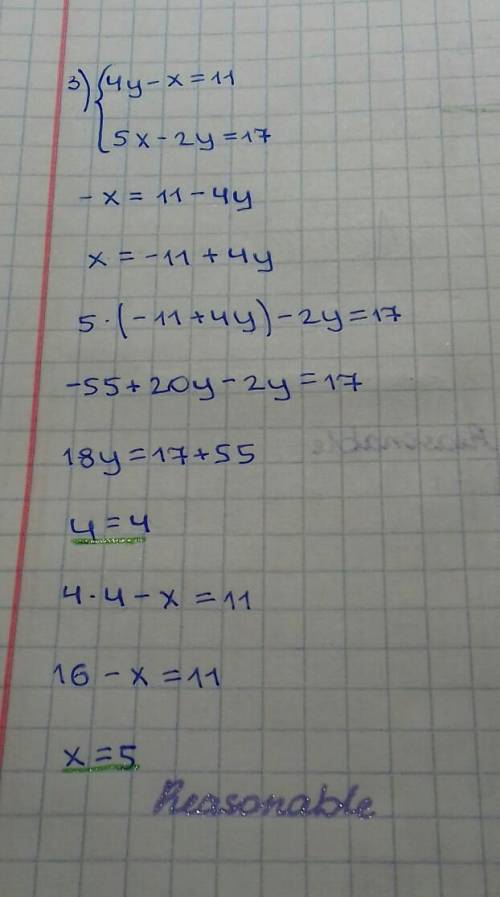 3) { 4y - x = 11
5x - 2y = 17
- x = 11 - 4y
x = -11 + 4y
5 · (-11 + 4y) - 2y = 17
-55 + 20y - 2y = 17
18y = 17 + 55
y = 4
4 · 4 - x = 11
16 - x = 11
x = 5
Reasonable